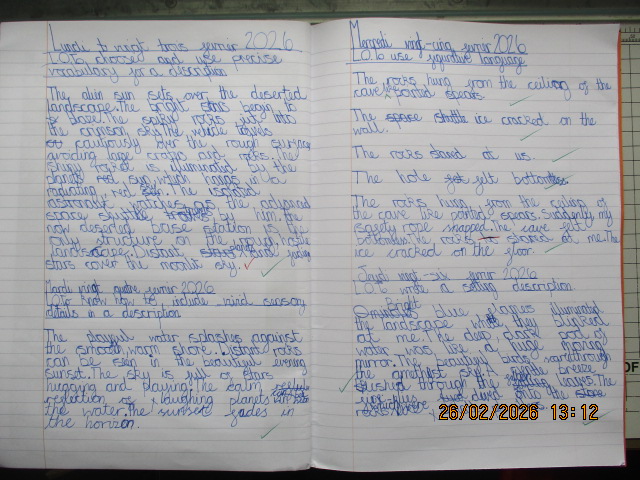 Lundi vingt trois janvier 2026
L.O. To choose and use precise
vocabulary for a description
The alien sun sets over the deserted
landscape. The bright stars begin to
blaze. The spiky rocks jut into
the crimson sky. The vehicle travels
cautiously over the rough surface
avoiding large craters and rocks. The
is illuminated by the
planets red sun, which emits a
radiating red. The isolated
astronaut watches as the advanced
space shuttle by him, the
now deserted base station is the
only structure on the
landscape. Distant and
stars cover the night sky.
Mardi vingt quatre janvier 2026
L.O. To know how to include sensory
details in a description
The playful water splashes against
the smooth, warm shore. Distant rocks
can be seen in the beautiful evening
sunset. The sky is full of stars
hugging and playing. The calm
reflection of laughing planets
the water. The sunset fades in
the horizon.
Mercredi vingt-cinq janvier 2026
L.O. To use figurative language
The rocks hung from the ceiling of the
cave pointed spears.
The ice cracked on the
wall.
The rocks stared at us.
The hole felt bottomless
The rocks hung from the ceiling of
the cave like pointed spears. Suddenly my
safety rope snapped. The cave felt
bottomless. The rocks stared at me. The
ice cracked on the floor.
Jeudi vingt-six janvier 2026
L.O. To write a setting description.
Bright
blue illuminated
the landscape they blinked
at me. The deep, pool of
water was like a huge
mirror. The beautiful birds
the amethyst sky. A breeze
through the leaves. The
onto the
26/02/2026 13:12